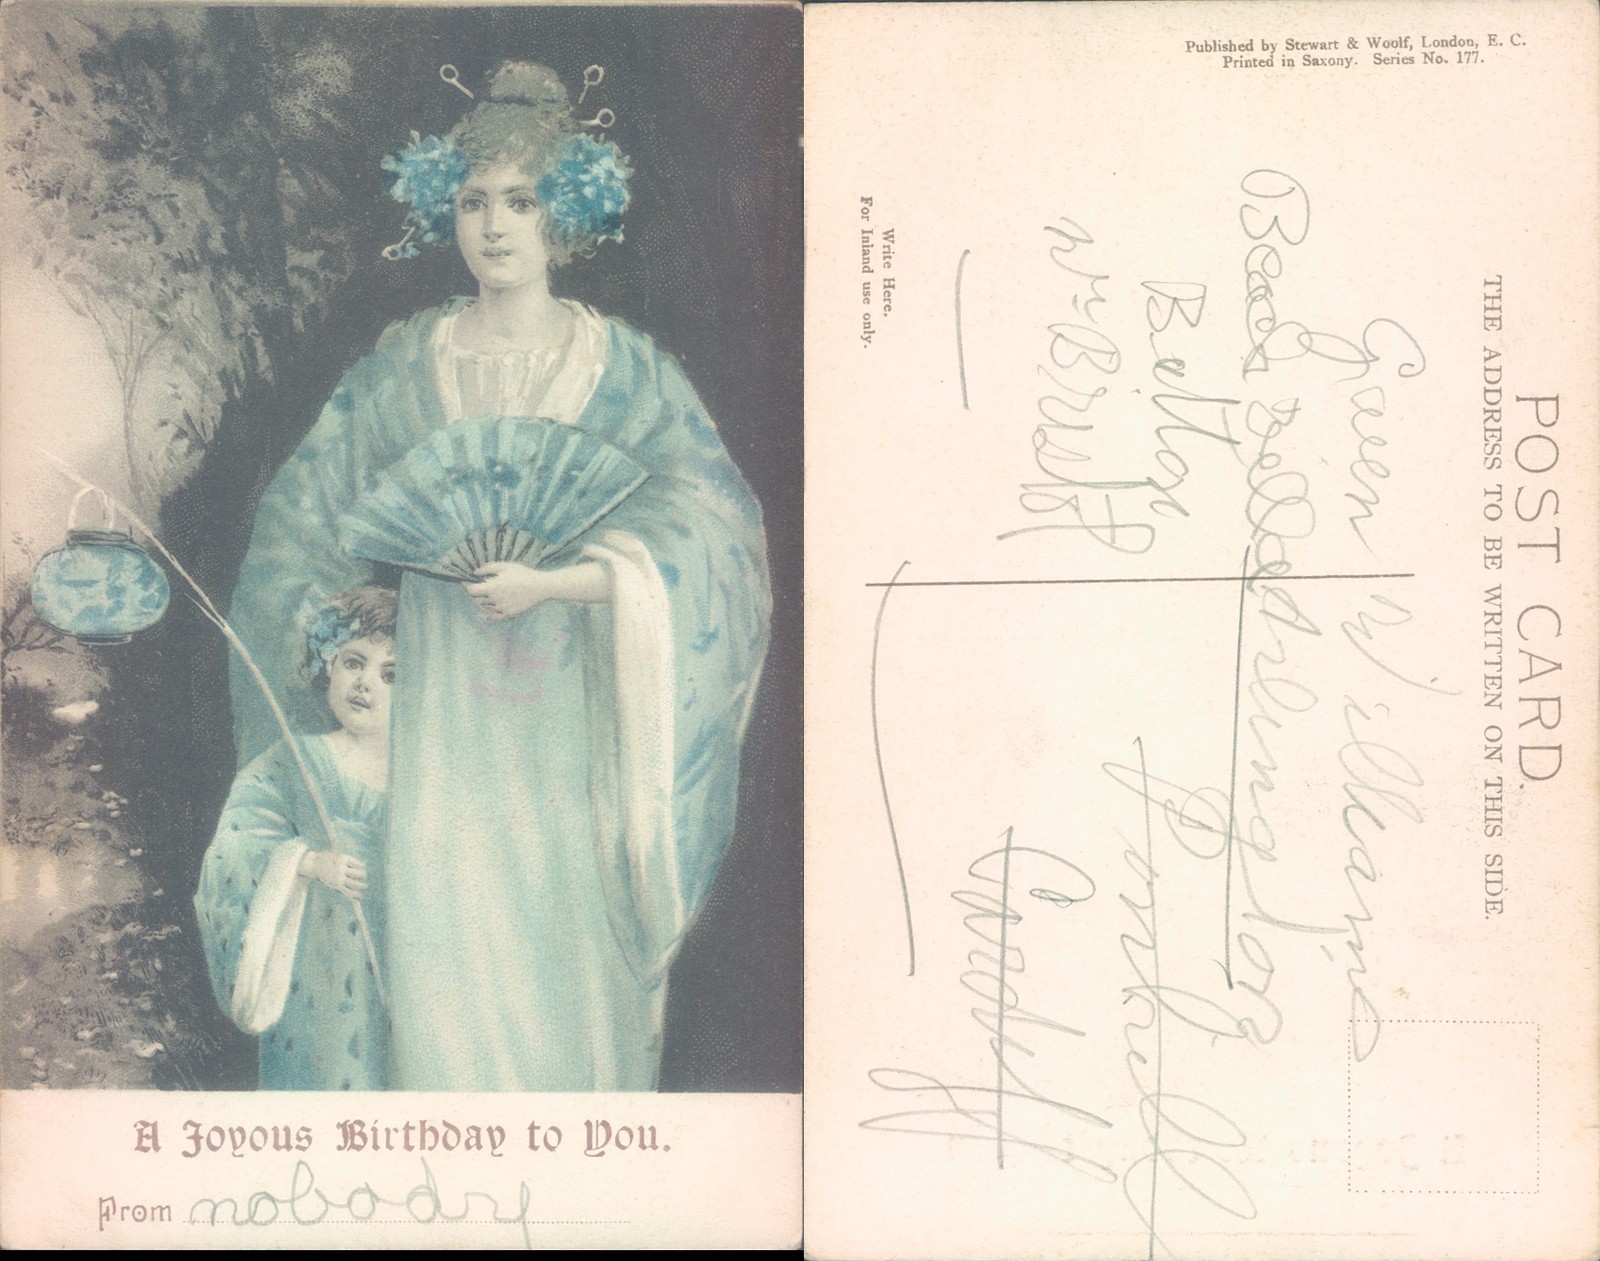 A Joyous Birthday to You.
From nobody
Published by Stewart & Woolf, London, E. C.
Printed in Saxony. Series No. 177.
POST CARD.
THE ADDRESS TO BE WRITTEN ON THIS SIDE.
Write Here.
For Inland use only.
Gwen Williams
Belton
Nr Bristol
Cardiff